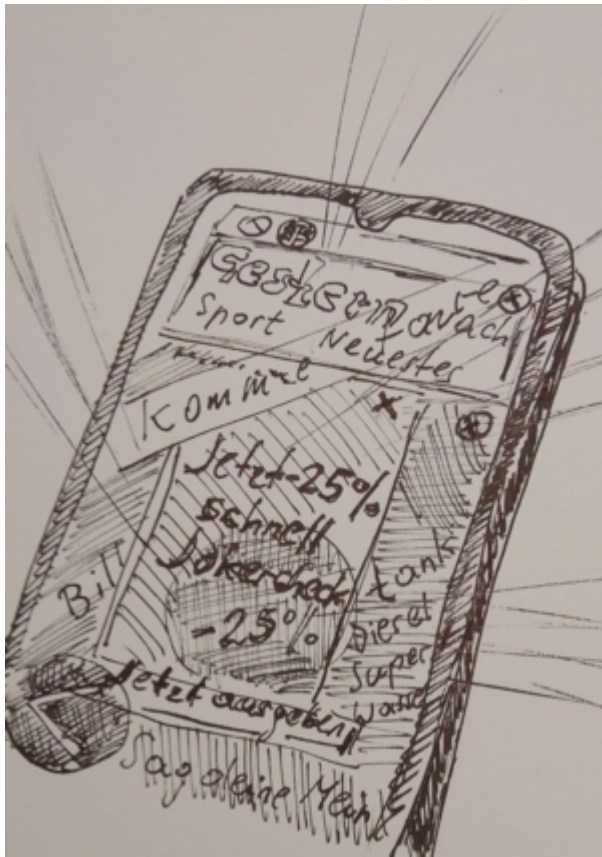 Gestern
Sport Neuestes
Komm
Jetzt-25%
schnell
Jokercheck
-25%
Bill
tank
Diesel
Super
Jetzt ausgeben
Sag deine Mein